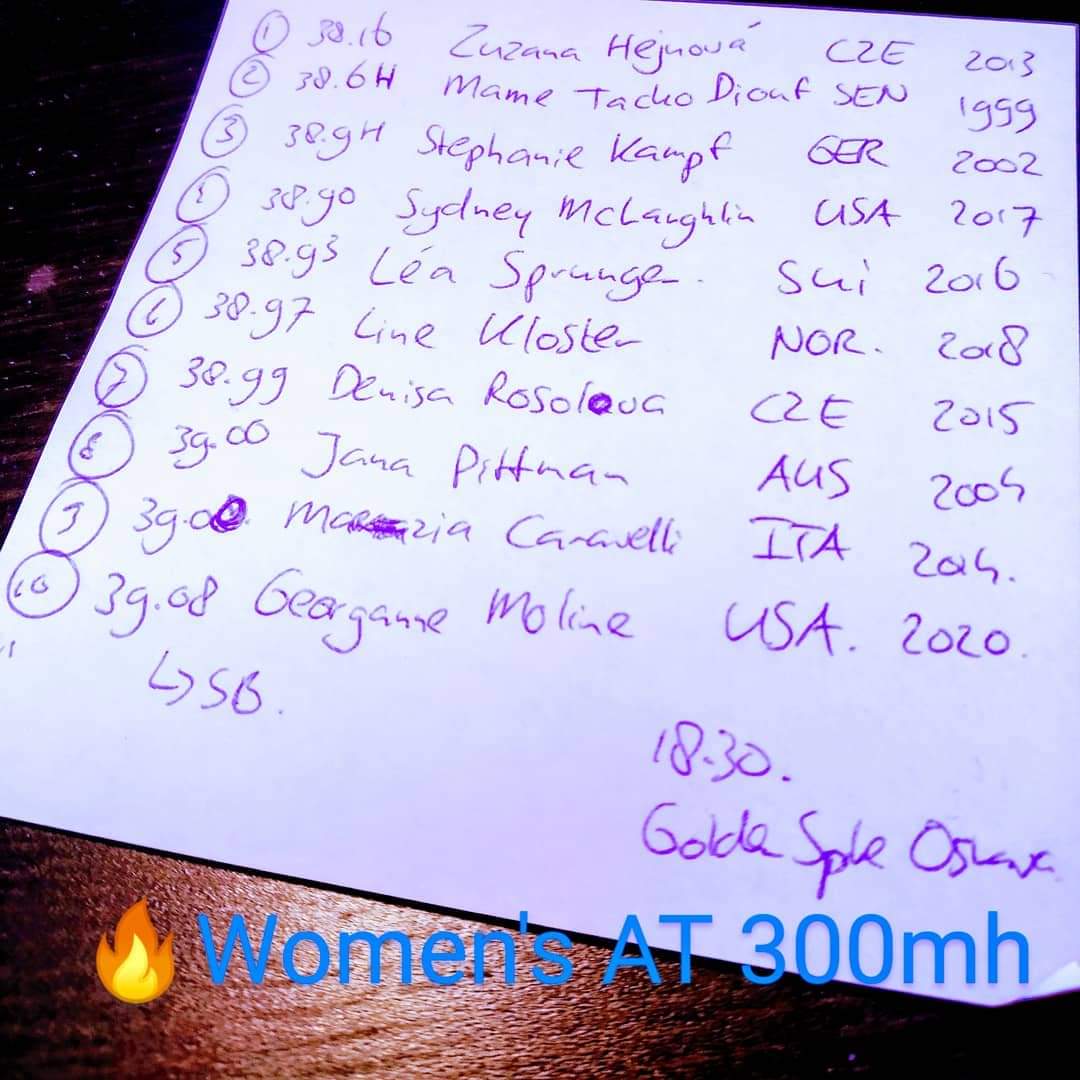 ① 38.16 Zuzana Hejnová CZE 2013
② 38.6H Mame Tacko Diouf SEN 1999
③ 38.9H Stephanie Kampf GER 2002
④ 38.90 Sydney McLaughlin USA 2017
⑤ 38.93 Léa Sprunger. Sui 2016
⑥ 38.97 Line Kloster NOR. 2018
⑦ 38.99 Denisa Rosolova CZE 2015
⑧ 39.00 Jana Pittman AUS 2004
⑨ 39.0 Marzia Caravelli ITA 2014.
⑩ 39.08 Georganne Moline USA. 2020.
↳SB.
18.30.
Golden Spike Ostrava
🔥Women's AT 300mh